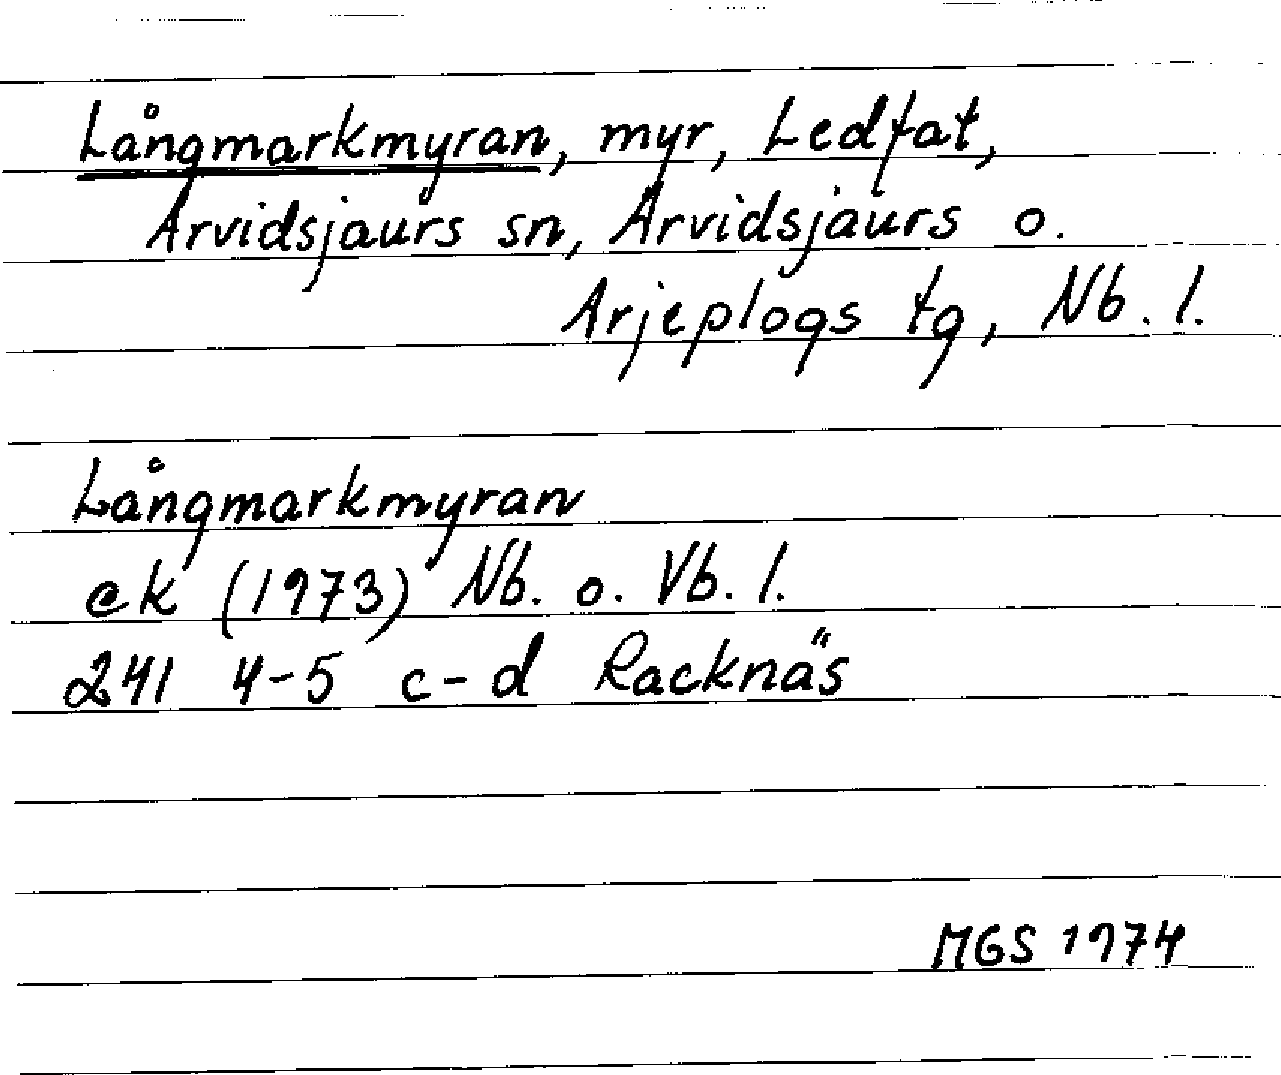 Långmarkmyran, myr, Ledfat,
Arvidsjaurs sn, Arvidsjaurs o.
Arjeplogs tg, Nb. l.
Långmarkmyran
ek (1973) Nb. o. Vb. l.
241 4-5 c-d Racknäs
MGS 1974